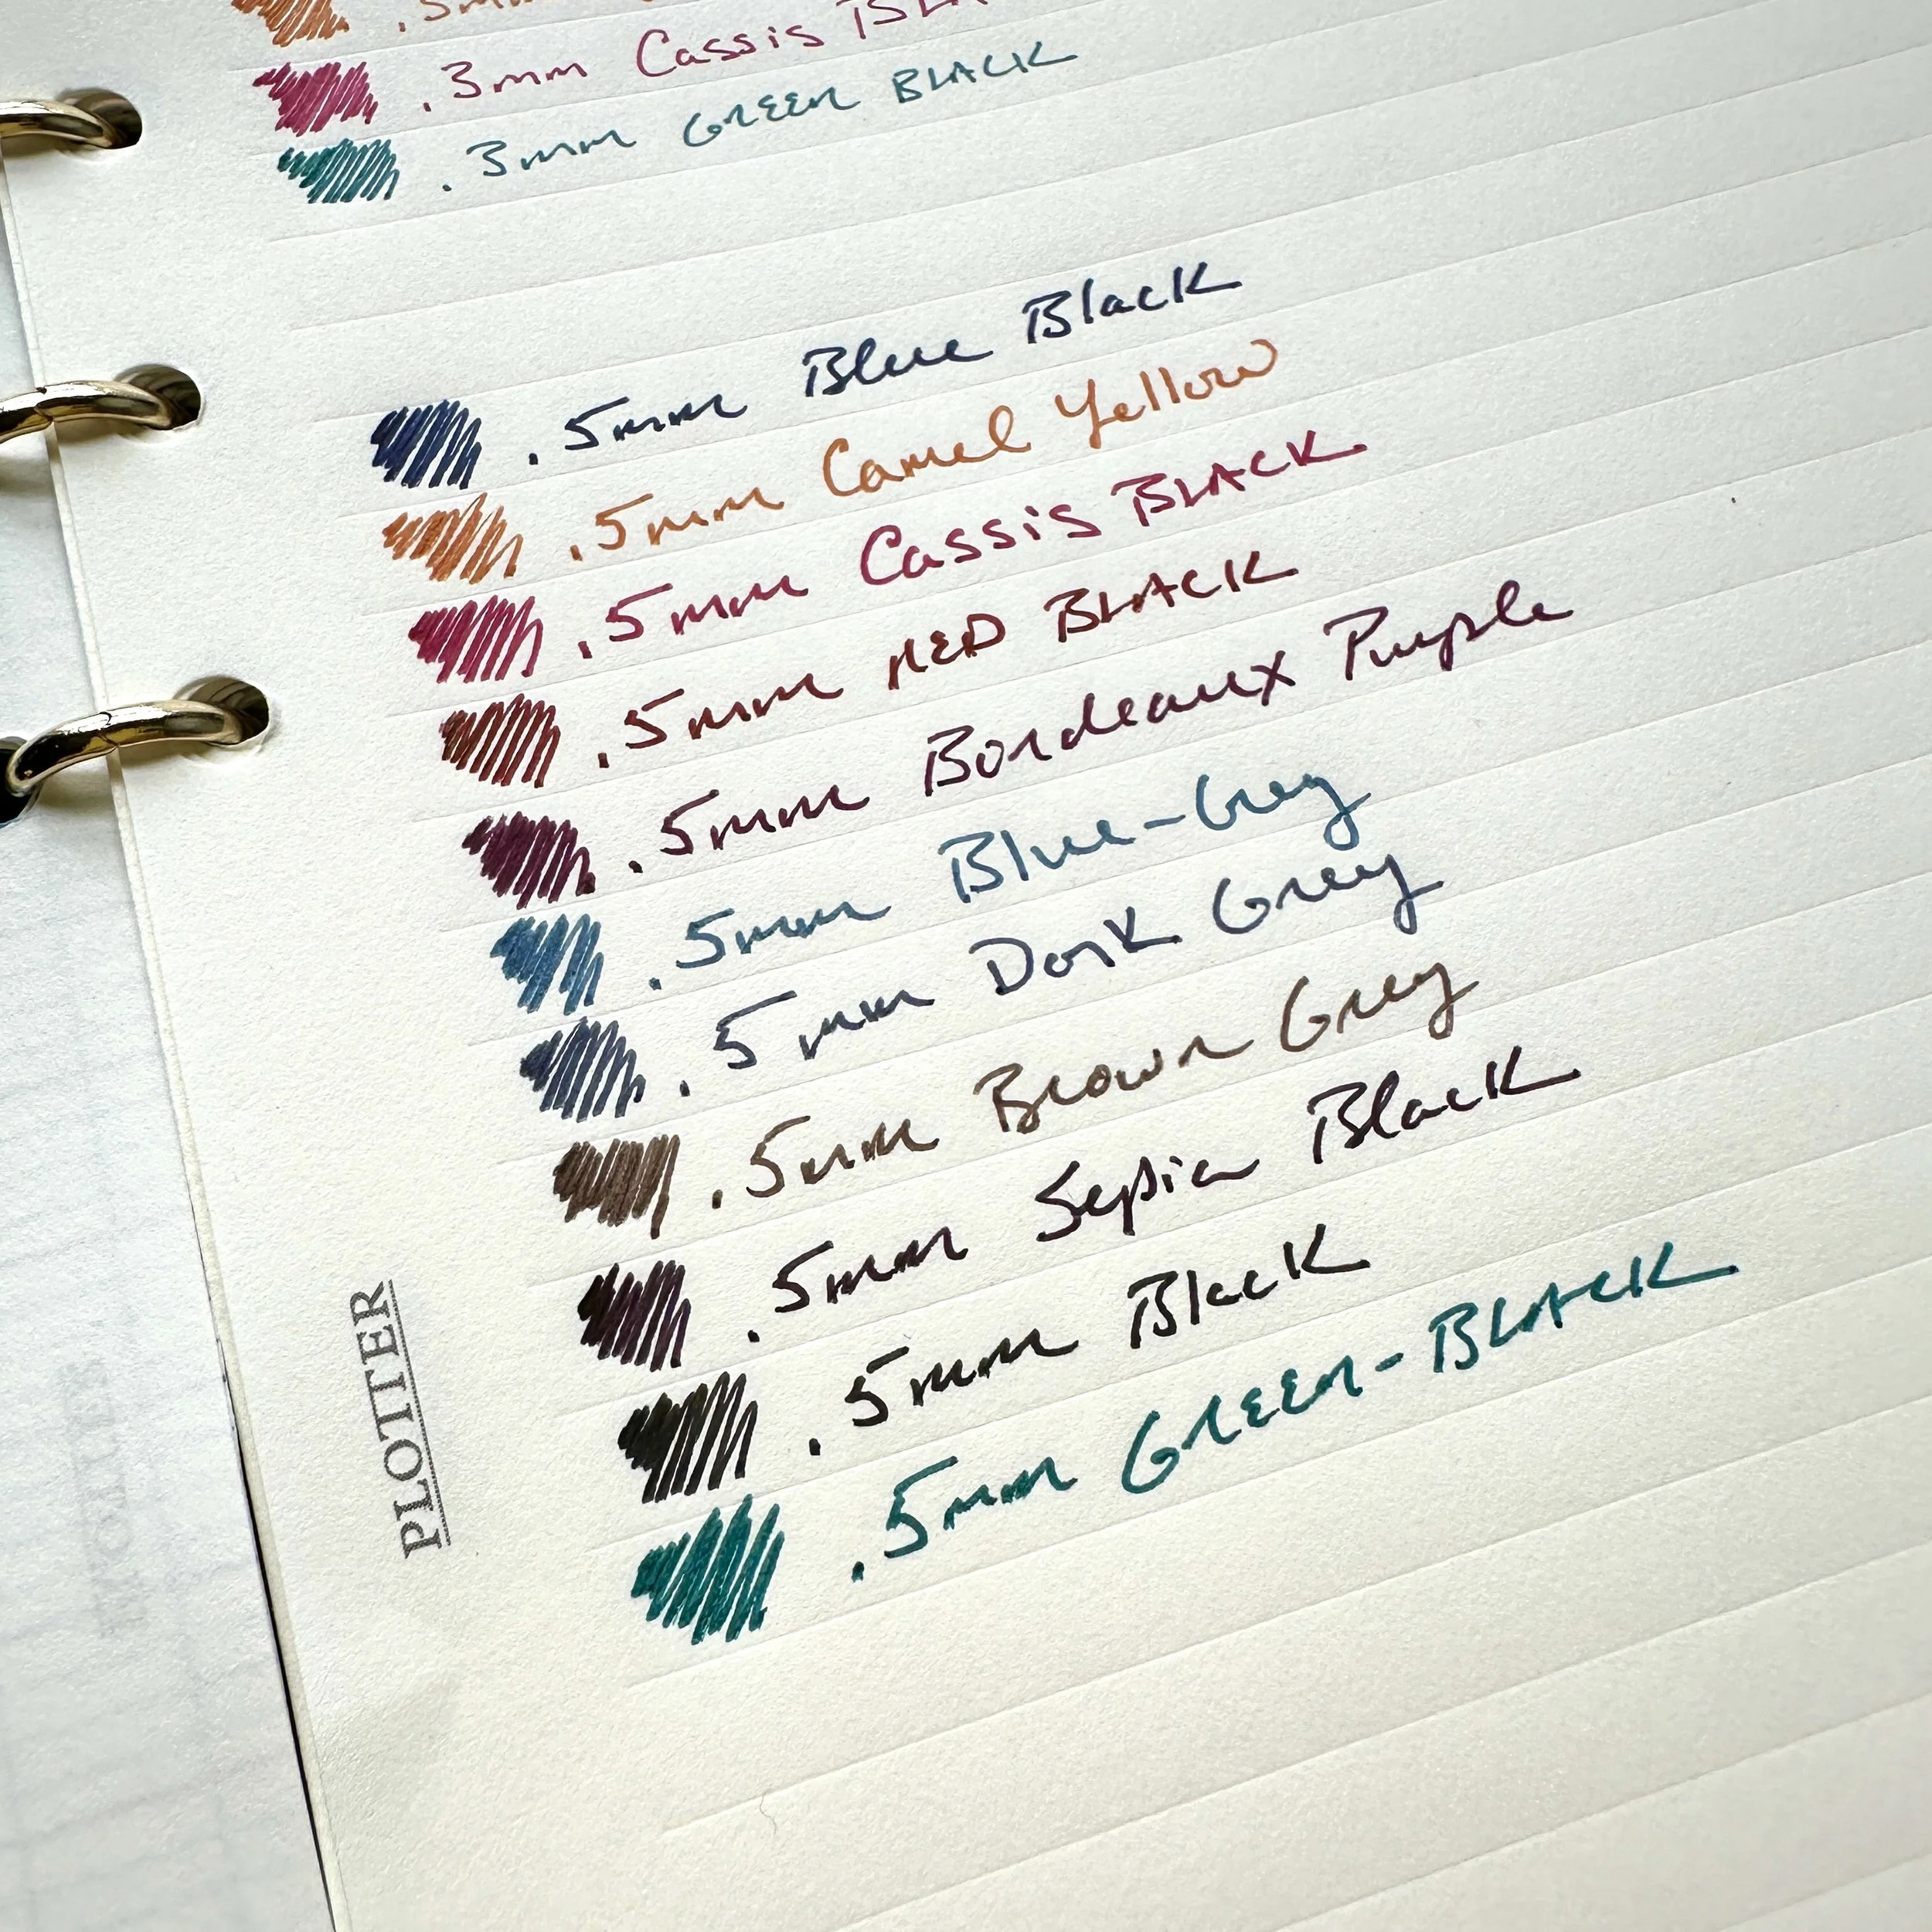 .3mm Cassis
.3mm GREEN BLACK
.5mm Blue Black
.5mm Camel Yellow
.5mm Cassis BLACK
.5mm RED BLACK
.5mm Bordeaux Purple
.5mm Blue-Grey
.5mm Dark Grey
.5mm Brown Grey
.5mm Sepia Black
.5mm Black
.5mm GREEN-BLACK
PLOTTER